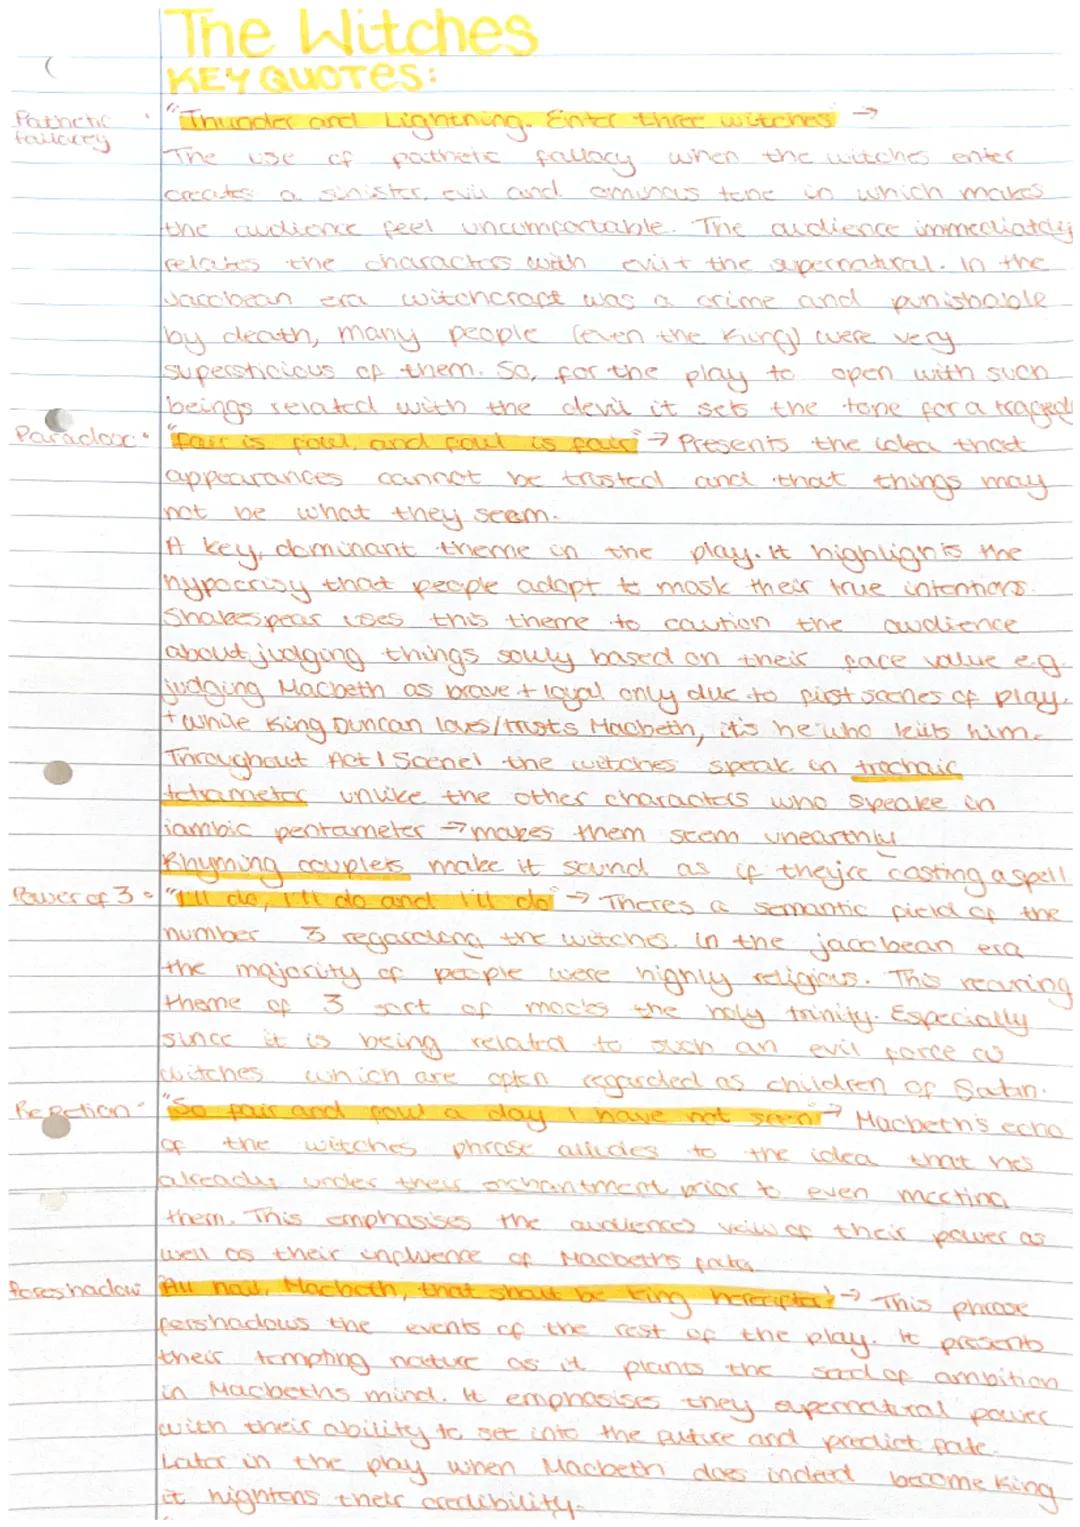 The Witches
KEY QUOTES:
Pathetic fallacy
"Thunder and Lightning. Enter three witches" →
The use of pathetic fallacy when the witches enter
creates a sinister, evil and ominous tone in which makes
the audience feel uncomfortable. The audience immediately
relates the characters with evil + the supernatural. In the
Jacobean era witchcraft was a crime and punishable
by death, many people (even the King) were very
supersticious of them. So, for the play to open with such
beings related with the devil it sets the tone for a tragedy
Paradox • "fair is foul, and foul is fair" → Presents the idea that
appearances cannot be trusted and that things may
not be what they seem.
A key, dominant theme in the play. It highlights the
hypocrisy that people adopt to mask their true intentions.
Shakespear uses this theme to caution the audience
about judging things souly based on their face value e.g.
judging Macbeth as brave + loyal only due to first scenes of play.
+ while King Duncan loves/trusts Macbeth, it's he who kills him.
Throughout Act 1 Scene 1 the witches speak in trochaic
tetrameter unlike the other characters who speake in
iambic pentameter → makes them seem unearthly
Rhyming couplets make it sound as if they're casting a spell
Power of 3 • "I'll do, I'll do and I'll do" → Theres a semantic field of the
number 3 regarding the witches. In the jacobean era
the majority of people were highly religious. This recuring
theme of 3 sort of mocks the holy trinity. Especially
since it is being related to such an evil force as
witches which are often regarded as children of Satan.
Repetion • "So fair and foul a day I have not seen" → Macbeth's echo
of the witches phrase alludes to the idea that he's
already under their enchantment prior to even meeting
them. This emphasises the audiences veiw of their power as
well as their influence of Macbeth's fate.
foreshadow "All hail, Macbeth, that shalt be king hereafter" → This phrase
forshadows the events of the rest of the play. It presents
their tempting nature as it plants the seed of ambition
in Macbeths mind. It emphasises they supernatural power
with their ability to see into the future and predict fate.
Later in the play when Macbeth does indeed become King
it hightens their credibility.